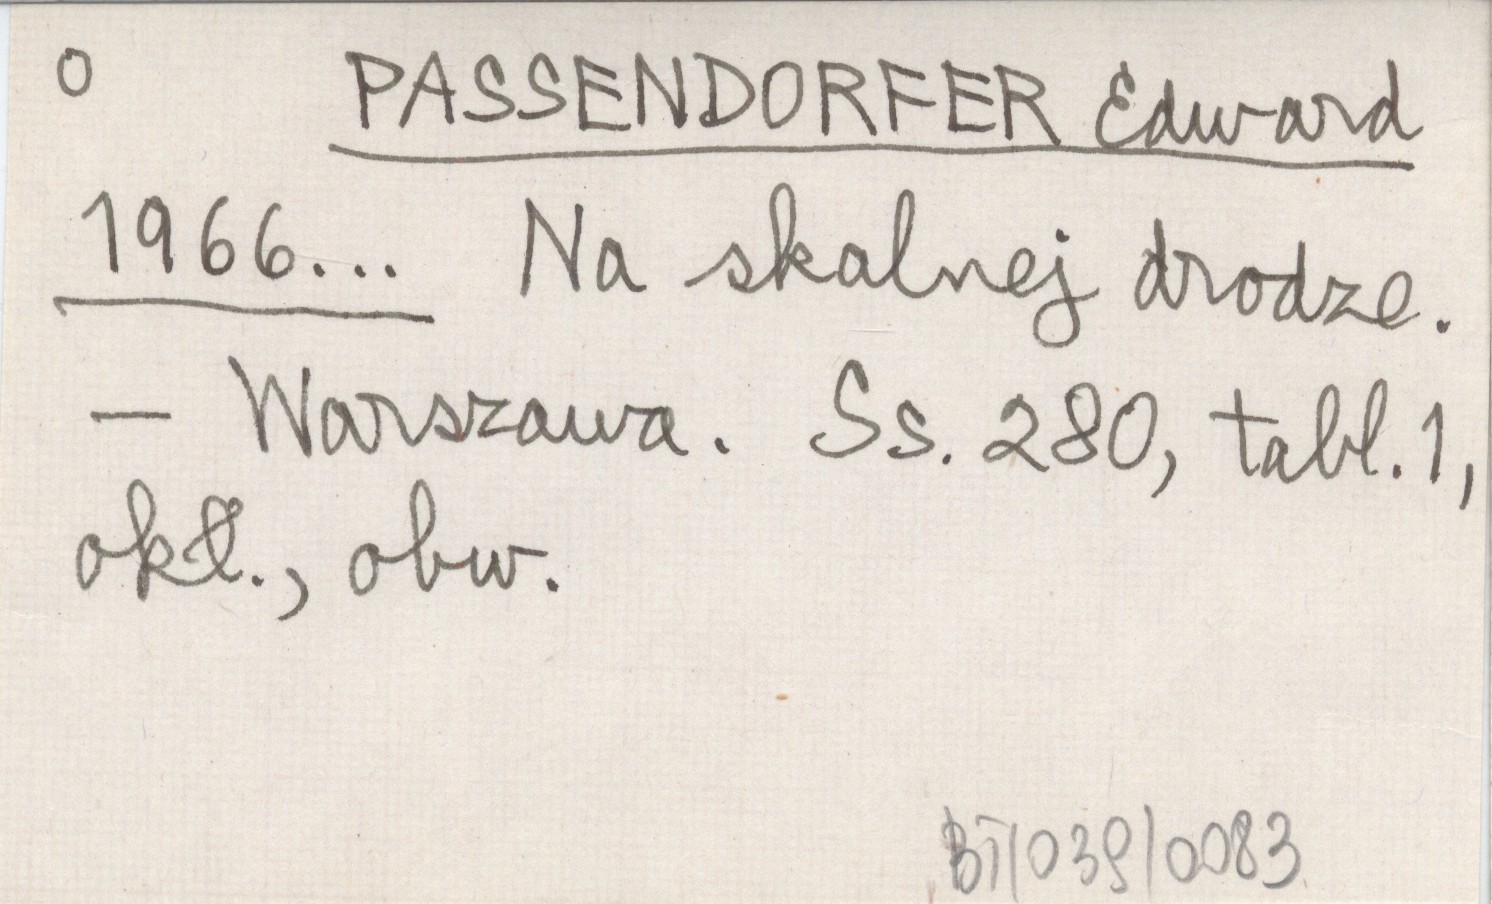 o PASSENDORFER Edward
1966... Na skalnej drodze.
— Warszawa. Ss. 280, tabl. 1,
okł., obw.
BT/039/0083